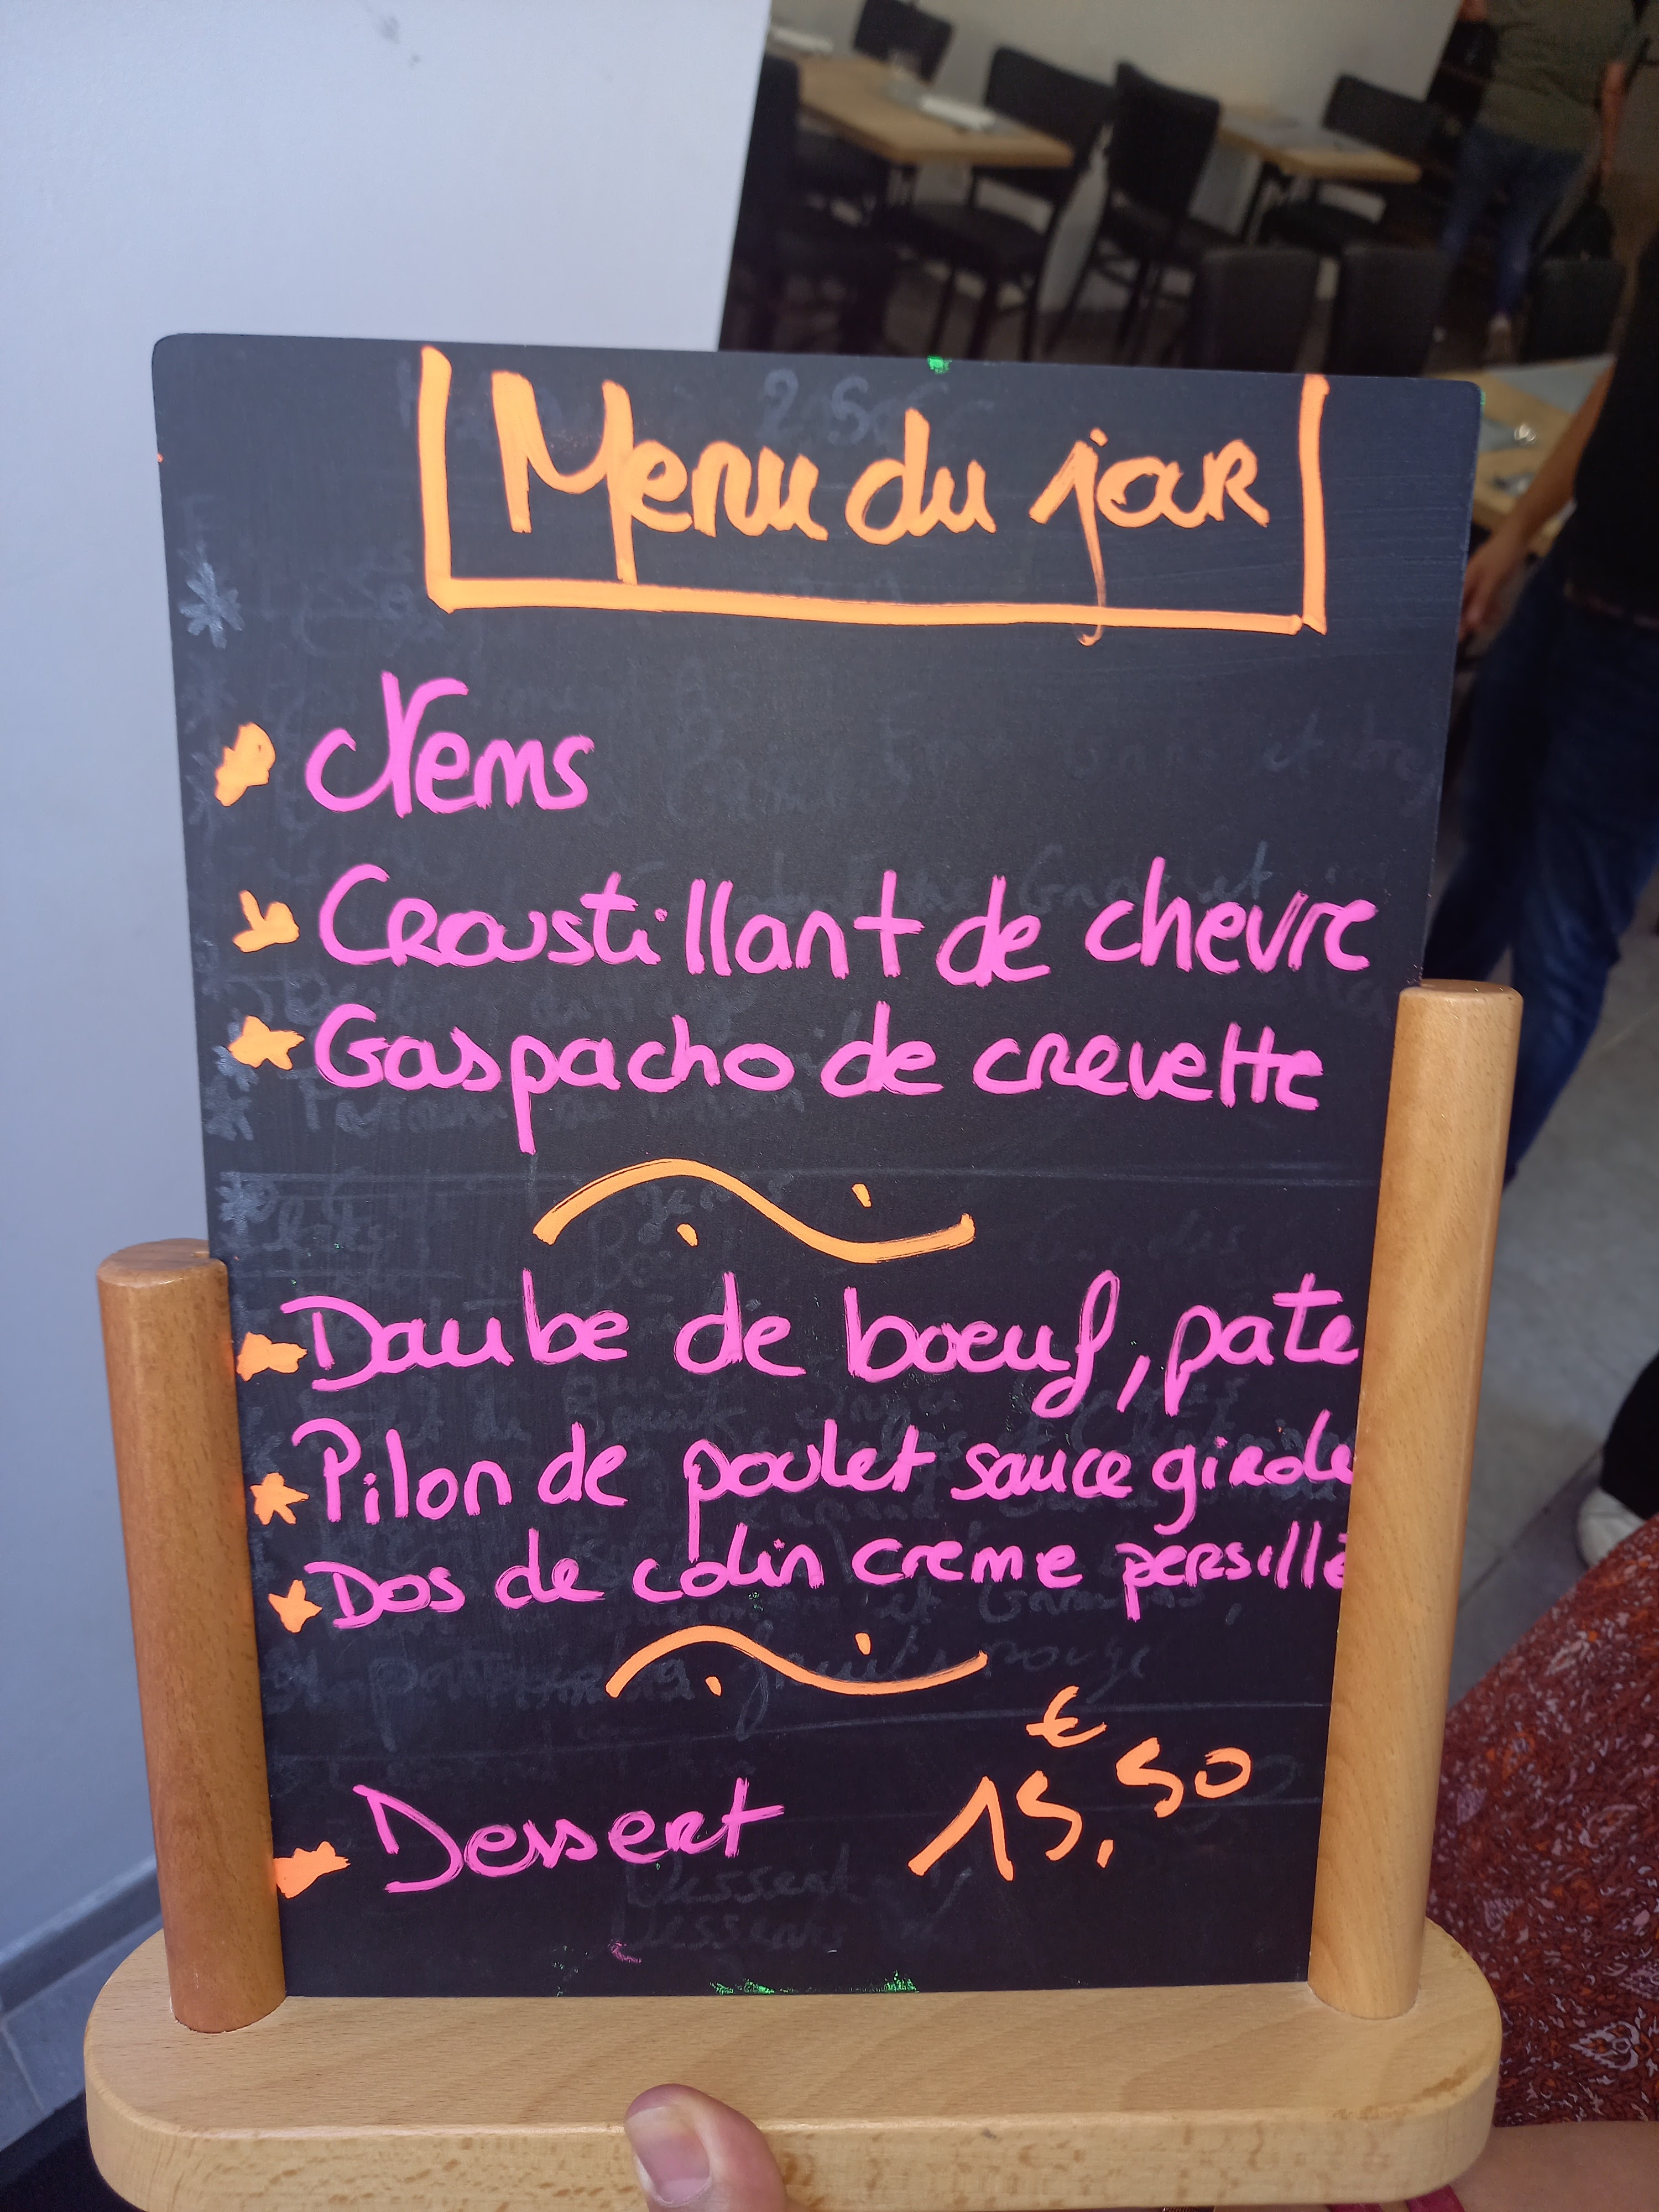 Menu du jour
Nems
Croustillant de chevre
Gaspacho de crevette
Daube de boeuf, pate
Pilon de poulet sauce girole
Dos de colin creme persillé
€
Dessert 15,50